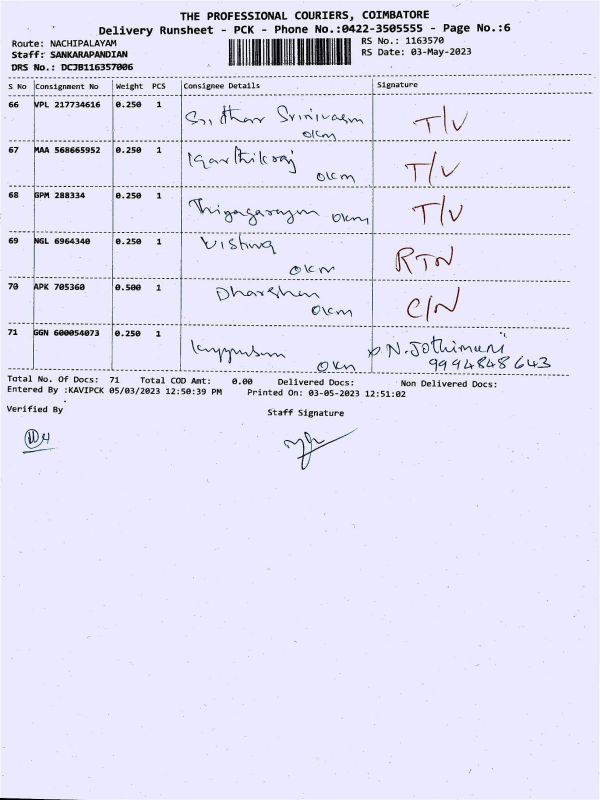 THE PROFESSIONAL COURIERS, COIMBATORE
Delivery Runsheet - PCK - Phone No.:0422-3505555 - Page No.:6
Route: NACHIPALAYAM RS No.: 1163570
Staff: SANKARAPANDIAN RS Date: 03-May-2023
DRS No.: DCJB116357006
S No Consignment No Weight PCS Consignee Details Signature
66 VPL 217734616 0.250 1
Sridhar Srinivasan T/V
0km
67 MAA 568665952 0.250 1
Karthikraj T/V
0km
68 GPM 288334 0.250 1
Thiyagarajan 0km T/V
69 NGL 6964340 0.250 1
RTN
0km
70 APK 705360 0.500 1
Dharshan C/N
0km
71 GGN 600054073 0.250 1
N. Jothimani
0km 9994848643
Total No. Of Docs: 71 Total COD Amt: 0.00 Delivered Docs: Non Delivered Docs:
Entered By :KAVIPCK 05/03/2023 12:50:39 PM Printed On: 03-05-2023 12:51:02
Verified By Staff Signature